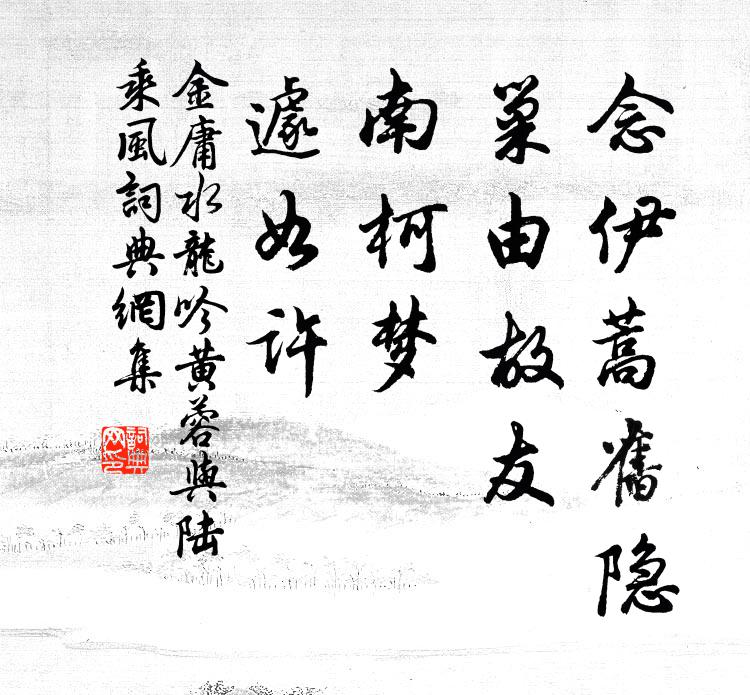 念伊蒿舊隐
巢由故友
南柯梦
遽如许
金庸水龍吟黄蓉與陆
乘風詞典網集
詞典网印